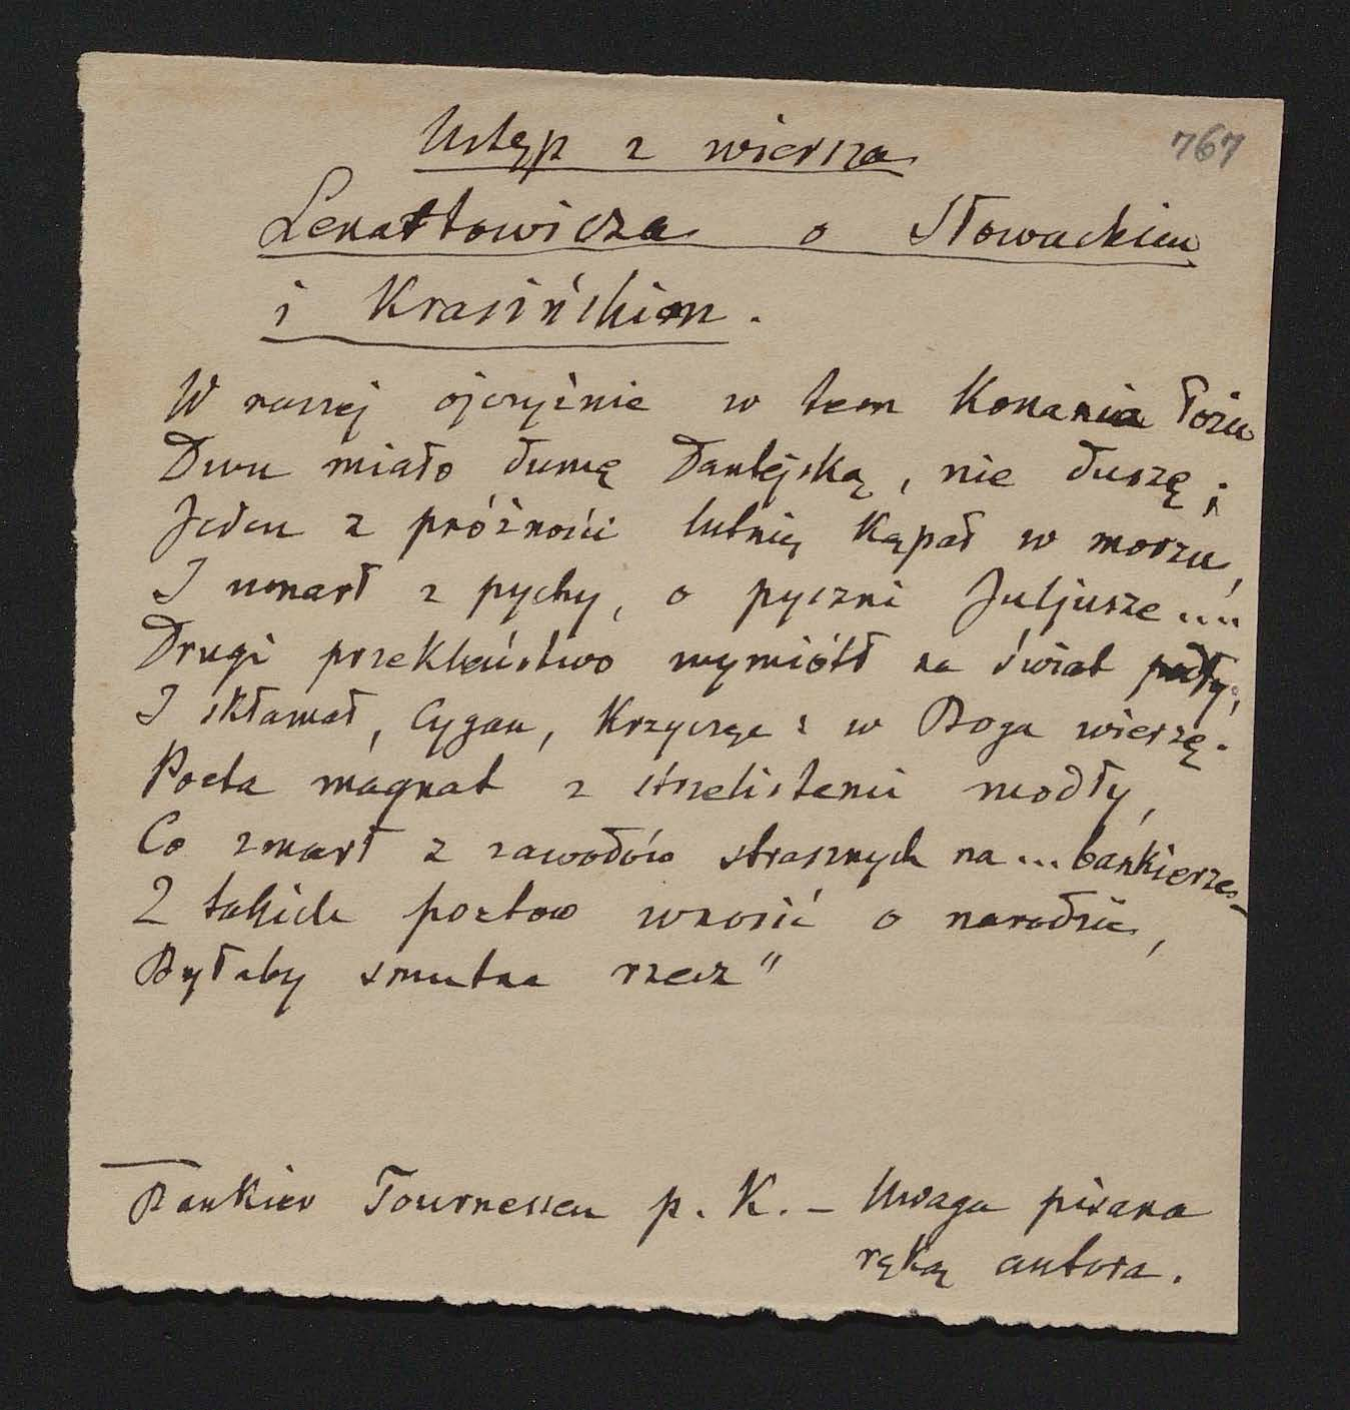 767
Ustęp z wiersza
Lenartowicza o Słowackim
i Krasińskim.
W naszej ojczyźnie w tem konania łożu
Dwu miało dumę Dantejską, nie duszę;
Jeden z próżności lutnię kąpał w morzu,
I umarł z pychy, o pyszni Juljusze....
Drugi przekleństwo wymiótł na świat podły;
I skłamał, Cygan, krzycząc: w Boga wierzę.
Poeta magnat z strzelistemi modły,
Co zmarł z zawodów strasznych na... bankierze
Z takich poetów wnosić o narodzie,
Byłaby smutna rzecz"
Bankier Tournessen p. K. – Uwaga pisana
ręką autora.